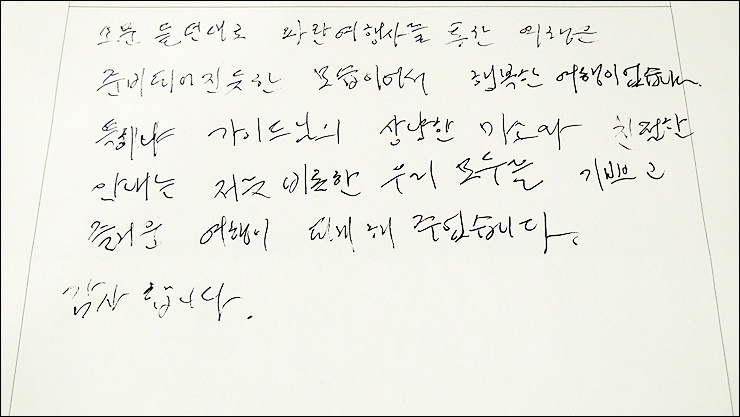 소문 듣던대로 파란여행사를 통한 여행은
준비되어진듯한 모습이어서 행복한 여행이었습니다.
특히나 가이드님의 상냥한 미소와 친절한
안내는 저를 비롯한 우리 모두를 기쁘고
즐거운 여행이 되게 해 주었습니다.
감사 합니다.